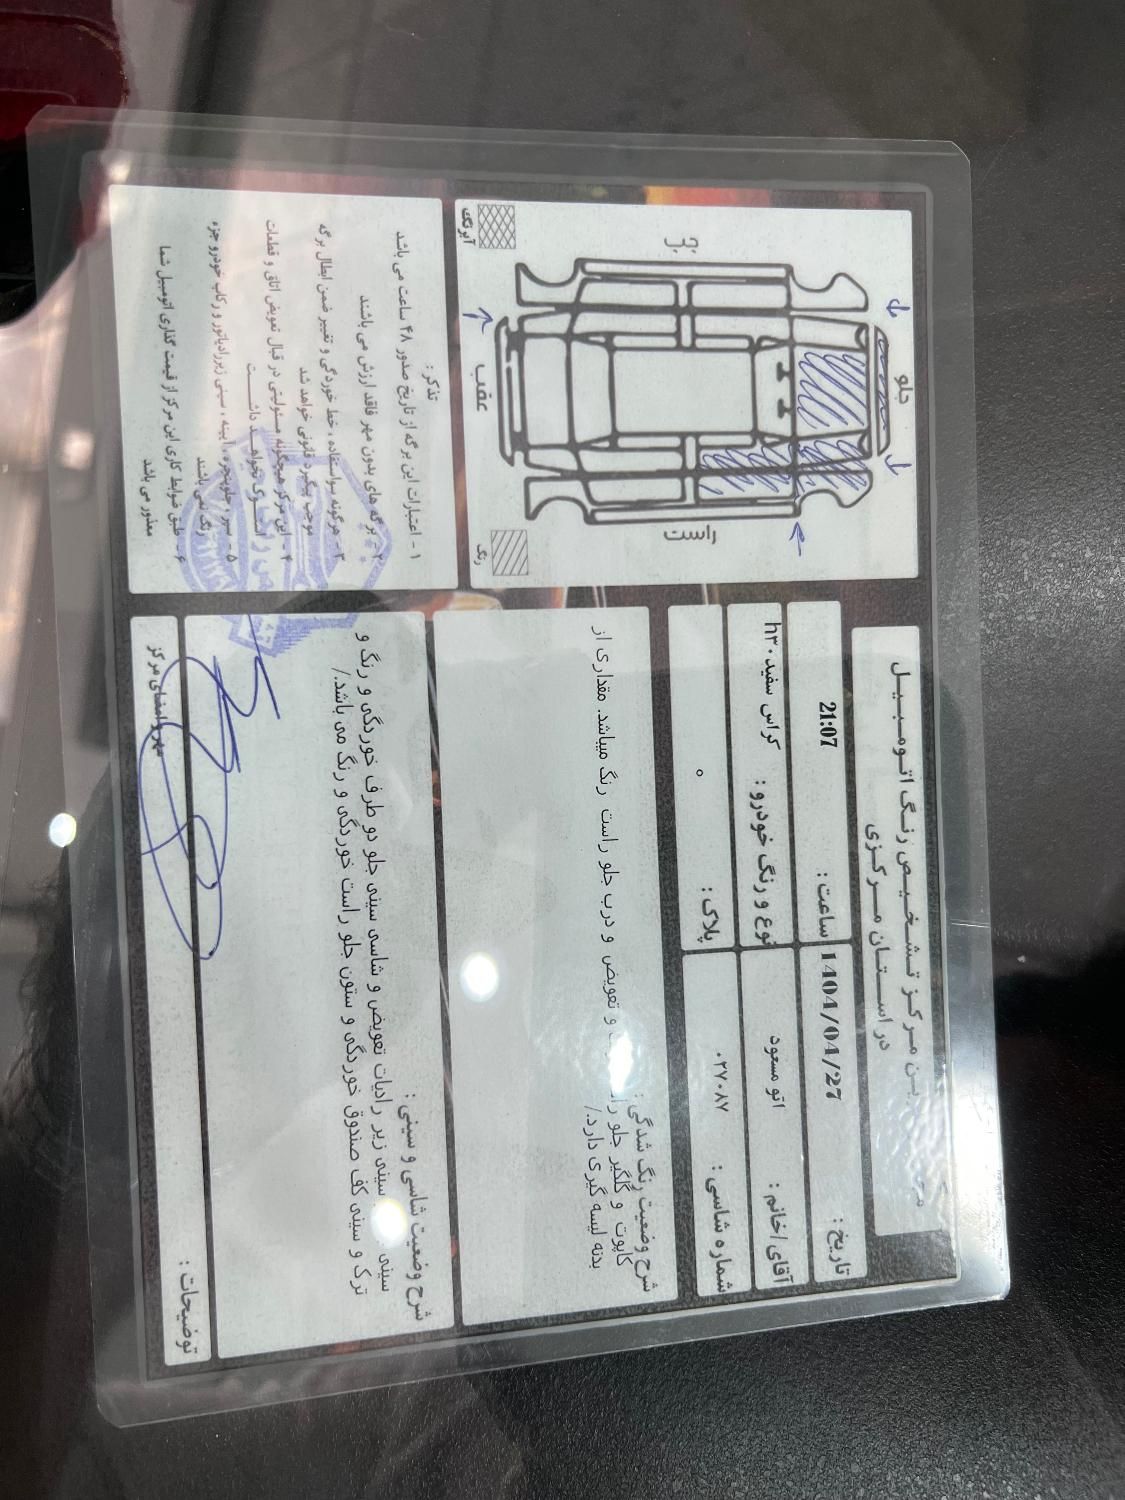 مرکز تشخیص رنگ اتومبیل
در استان مرکزی
تاریخ : 1404/04/27
ساعت : 21:07
آقای/خانم : اتو مسعود
نوع و رنگ خودرو : کراس سفید h۳۰
شماره شاسی : ۰۲۷۰۸۷
پلاک : ۰
شرح وضعیت رنگ شدگی :
کاپوت و گلگیر جلو و تعویض و درب جلو راست رنگ میباشد. مقداری از
بدنه لیسه گیری دارد./
شرح وضعیت شاسی و سینی :
سینی سینی زیر رادیات تعویض و شاسی سینی جلو دو طرف خوردگی و رنگ و
ترک و سینی کف صندوق خوردگی و ستون جلو راست خوردگی و رنگ می باشد./
توضیحات :
مهر و امضای مرکز
جلو
عقب
چپ
راست
آبرنگ
رنگ
تذکر :
۱ - اعتبارات این برگه از تاریخ صدور ۴۸ ساعت می باشد
۲ - برگه های بدون مهر فاقد ارزش می باشند
۳ - هرگونه سواستفاده ، خط خوردگی و تغییر ضمن ابطال برگه
موجب پیگرد قانونی خواهد شد
۴ - این مرکز هیچگونه مسئولیتی در قبال تعویض اتاق و قطعات
استوک نخواهد داشت
۵ - سپر ، جلوپنجره ، آینه ، سینی زیررادیاتور و رکاب خودرو جزء
رنگ نمی باشند
۶ - طبق ضوابط کاری این مرکز از قیمت گذاری اتومبیل شما
معذور می باشد